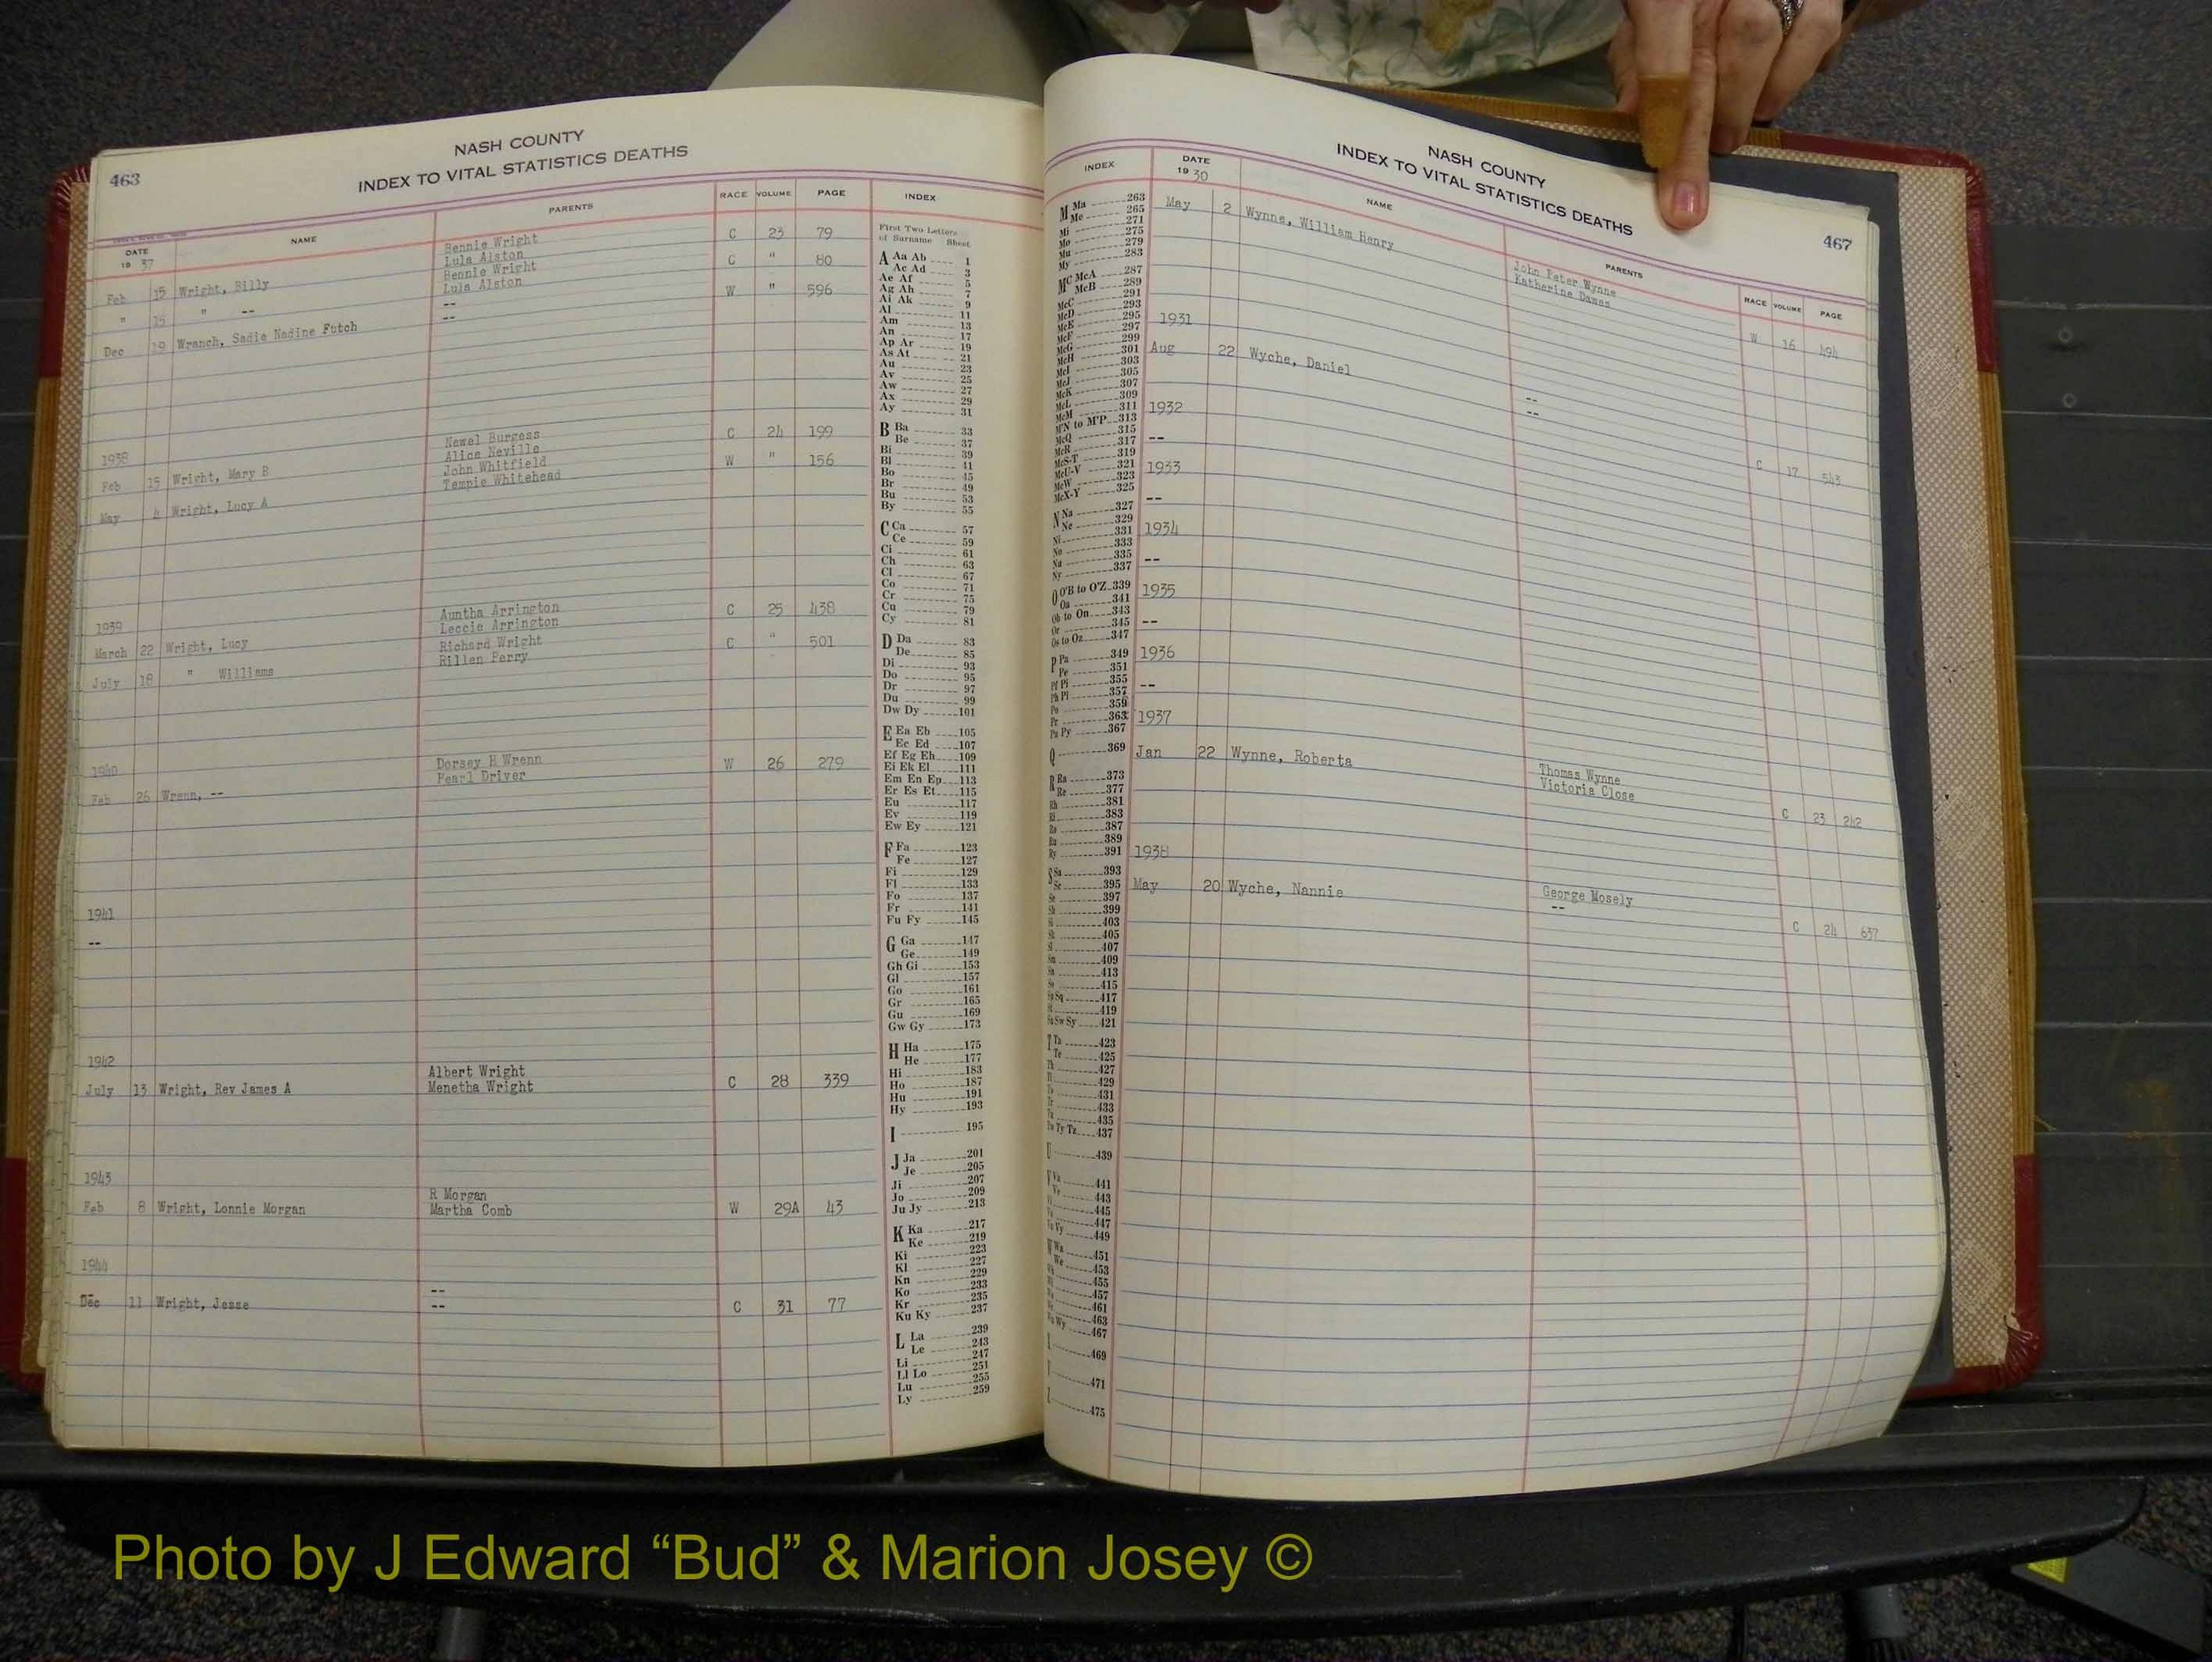 463
NASH COUNTY
INDEX TO VITAL STATISTICS DEATHS
DATE 19 37 NAME PARENTS RACE VOLUME PAGE
Feb 15 Wright, Billy Bennie Wright C 23 79
Lula Alston
" 15 " -- Bennie Wright C " 80
Lula Alston
Dec 19 Wranch, Sadie Nadine Futch -- W " 596
--
1938
Feb 15 Wright, Mary B Newel Burgess C 24 199
Alice Neville
May 4 Wright, Lucy A John Whitfield W " 156
Tempie Whitehead
1939
March 22 Wright, Lucy Auntha Arrington C 25 438
Leccie Arrington
July 18 " Williams Richard Wright C " 501
Rillen Perry
1940
Feb 26 Wrenn, -- Dorsey H Wrenn W 26 279
Pearl Driver
1941
--
1942
July 13 Wright, Rev James A Albert Wright C 28 339
Menetha Wright
1943
Feb 8 Wright, Lonnie Morgan R Morgan W 29A 43
Martha Comb
1944
Dec 11 Wright, Jesse -- C 31 77
--
INDEX
First Two Letters
of Surname Sheet
A Aa Ab 1
Ac Ad 3
Ae Af 5
Ag Ah 7
Ai Ak 9
Al 11
Am 13
An 17
Ap Ar 19
As At 21
Au 23
Av 25
Aw 27
Ax 29
Ay 31
B Ba 33
Be 37
Bi 39
Bl 41
Bo 45
Br 49
Bu 53
By 55
C Ca 57
Ce 59
Ci 61
Ch 63
Cl 67
Co 71
Cr 75
Cu 79
Cy 81
D Da 83
De 85
Di 93
Do 95
Dr 97
Du 99
Dw Dy 101
E Ea Eb 105
Ec Ed 107
Ef Eg Eh 109
Ei Ek El 111
Em En Ep 113
Er Es Et 115
Eu 117
Ev 119
Ew Ey 121
F Fa 123
Fe 127
Fi 129
Fl 133
Fo 137
Fr 141
Fu Fy 145
G Ga 147
Ge 149
Gh Gi 153
Gl 157
Go 161
Gr 165
Gu 169
Gw Gy 173
H Ha 175
He 177
Hi 183
Ho 187
Hu 191
Hy 193
I 195
J Ja 201
Je 205
Ji 207
Jo 209
Ju Jy 213
K Ka 217
Ke 219
Ki 223
Kl 227
Kn 229
Ko 233
Kr 235
Ku Ky 237
L La 239
Le 243
Li 247
Ll Lo 251
Lu 255
Ly 259
INDEX
M Ma 263
Me 265
Mi 271
Mo 275
Mu 279
My 283
MC McA 287
McB 289
McC 291
McD 293
McE 295
McF 297
McG 299
McH 301
McI 303
McJ 305
McK 307
McL 309
McM 311
M'N to M'P 313
McQ 315
McR 317
McS-T 319
McU-V 321
McW 323
McX-Y 325
N Na 327
Ne 329
Ni 331
No 333
Nu 335
Ny 337
O O'B to O'Z 339
Oa 341
Ob to On 343
Or 345
Os to Oz 347
P Pa 349
Pe 351
Pf Pi 355
Ph Pl 357
Po 359
Pr 363
Pu Py 367
Q 369
R Ra 373
Re 377
Rh 381
Ri 383
Ro 387
Ru 389
Ry 391
S Sa 393
Sc 395
Se 397
Sh 399
Si 403
Sk 405
Sl 407
Sm 409
Sn 413
So 415
Sp Sq 417
St 419
Su Sw Sy 421
T Ta 423
Te 425
Th 427
Ti 429
To 431
Tr 433
Tu 435
Tw Ty Tz 437
U 439
V Va 441
Ve 443
Vi 445
Vo 447
Vu Vy 449
W Wa 451
We 453
Wh 455
Wi 457
Wo 461
Wr 463
Wu Wy 467
469
471
475
NASH COUNTY
INDEX TO VITAL STATISTICS DEATHS
467
DATE 19 30 NAME PARENTS RACE VOLUME PAGE
May 2 Wynne, William Henry John Peter Wynne W 16 494
Katherine Dawes
1931
Aug 22 Wyche, Daniel -- C 17 543
--
1932
--
1933
--
1934
--
1935
--
1936
--
1937
Jan 22 Wynne, Roberta Thomas Wynne C 23 242
Victoria Close
1938
May 20 Wyche, Nannie George Mosely C 24 637
--
Photo by J Edward “Bud” & Marion Josey ©